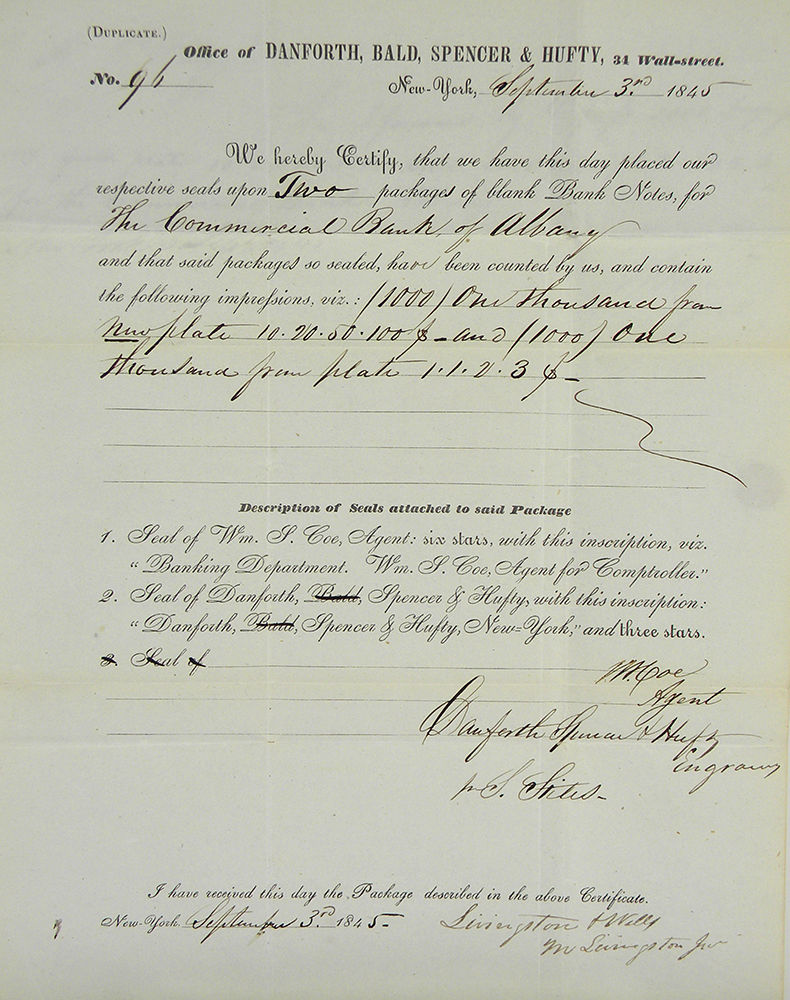 (DUPLICATE.)
Office of DANFORTH, BALD, SPENCER & HUFTY, 34 Wall-street.
No. 96
New-York, September 3.rd 1845
We hereby Certify, that we have this day placed our
respective seals upon Two packages of blank Bank Notes, for
The Commercial Bank of Albany
and that said packages so sealed, have been counted by us, and contain
the following impressions, viz.: (1000) One thousand from
New plate 10.20.50.100 $ - and (1000) One
thousand from plate 1.1.2.3 $ -
Description of Seals attached to said Package
1. Seal of Wm. S. Coe, Agent: six stars, with this inscription, viz.
"Banking Department. Wm. S. Coe, Agent for Comptroller."
2. Seal of Danforth, Bald, Spencer & Hufty, with this inscription:
"Danforth, Bald, Spencer & Hufty, New=York," and three stars.
3. Seal of
Coe
Agent
Danforth Spencer & Hufty
Engravers
S. Stiles-
I have received this day the Package described in the above Certificate.
New-York. September 3.rd 1845-
Livingston & Wells
Livingston Jr